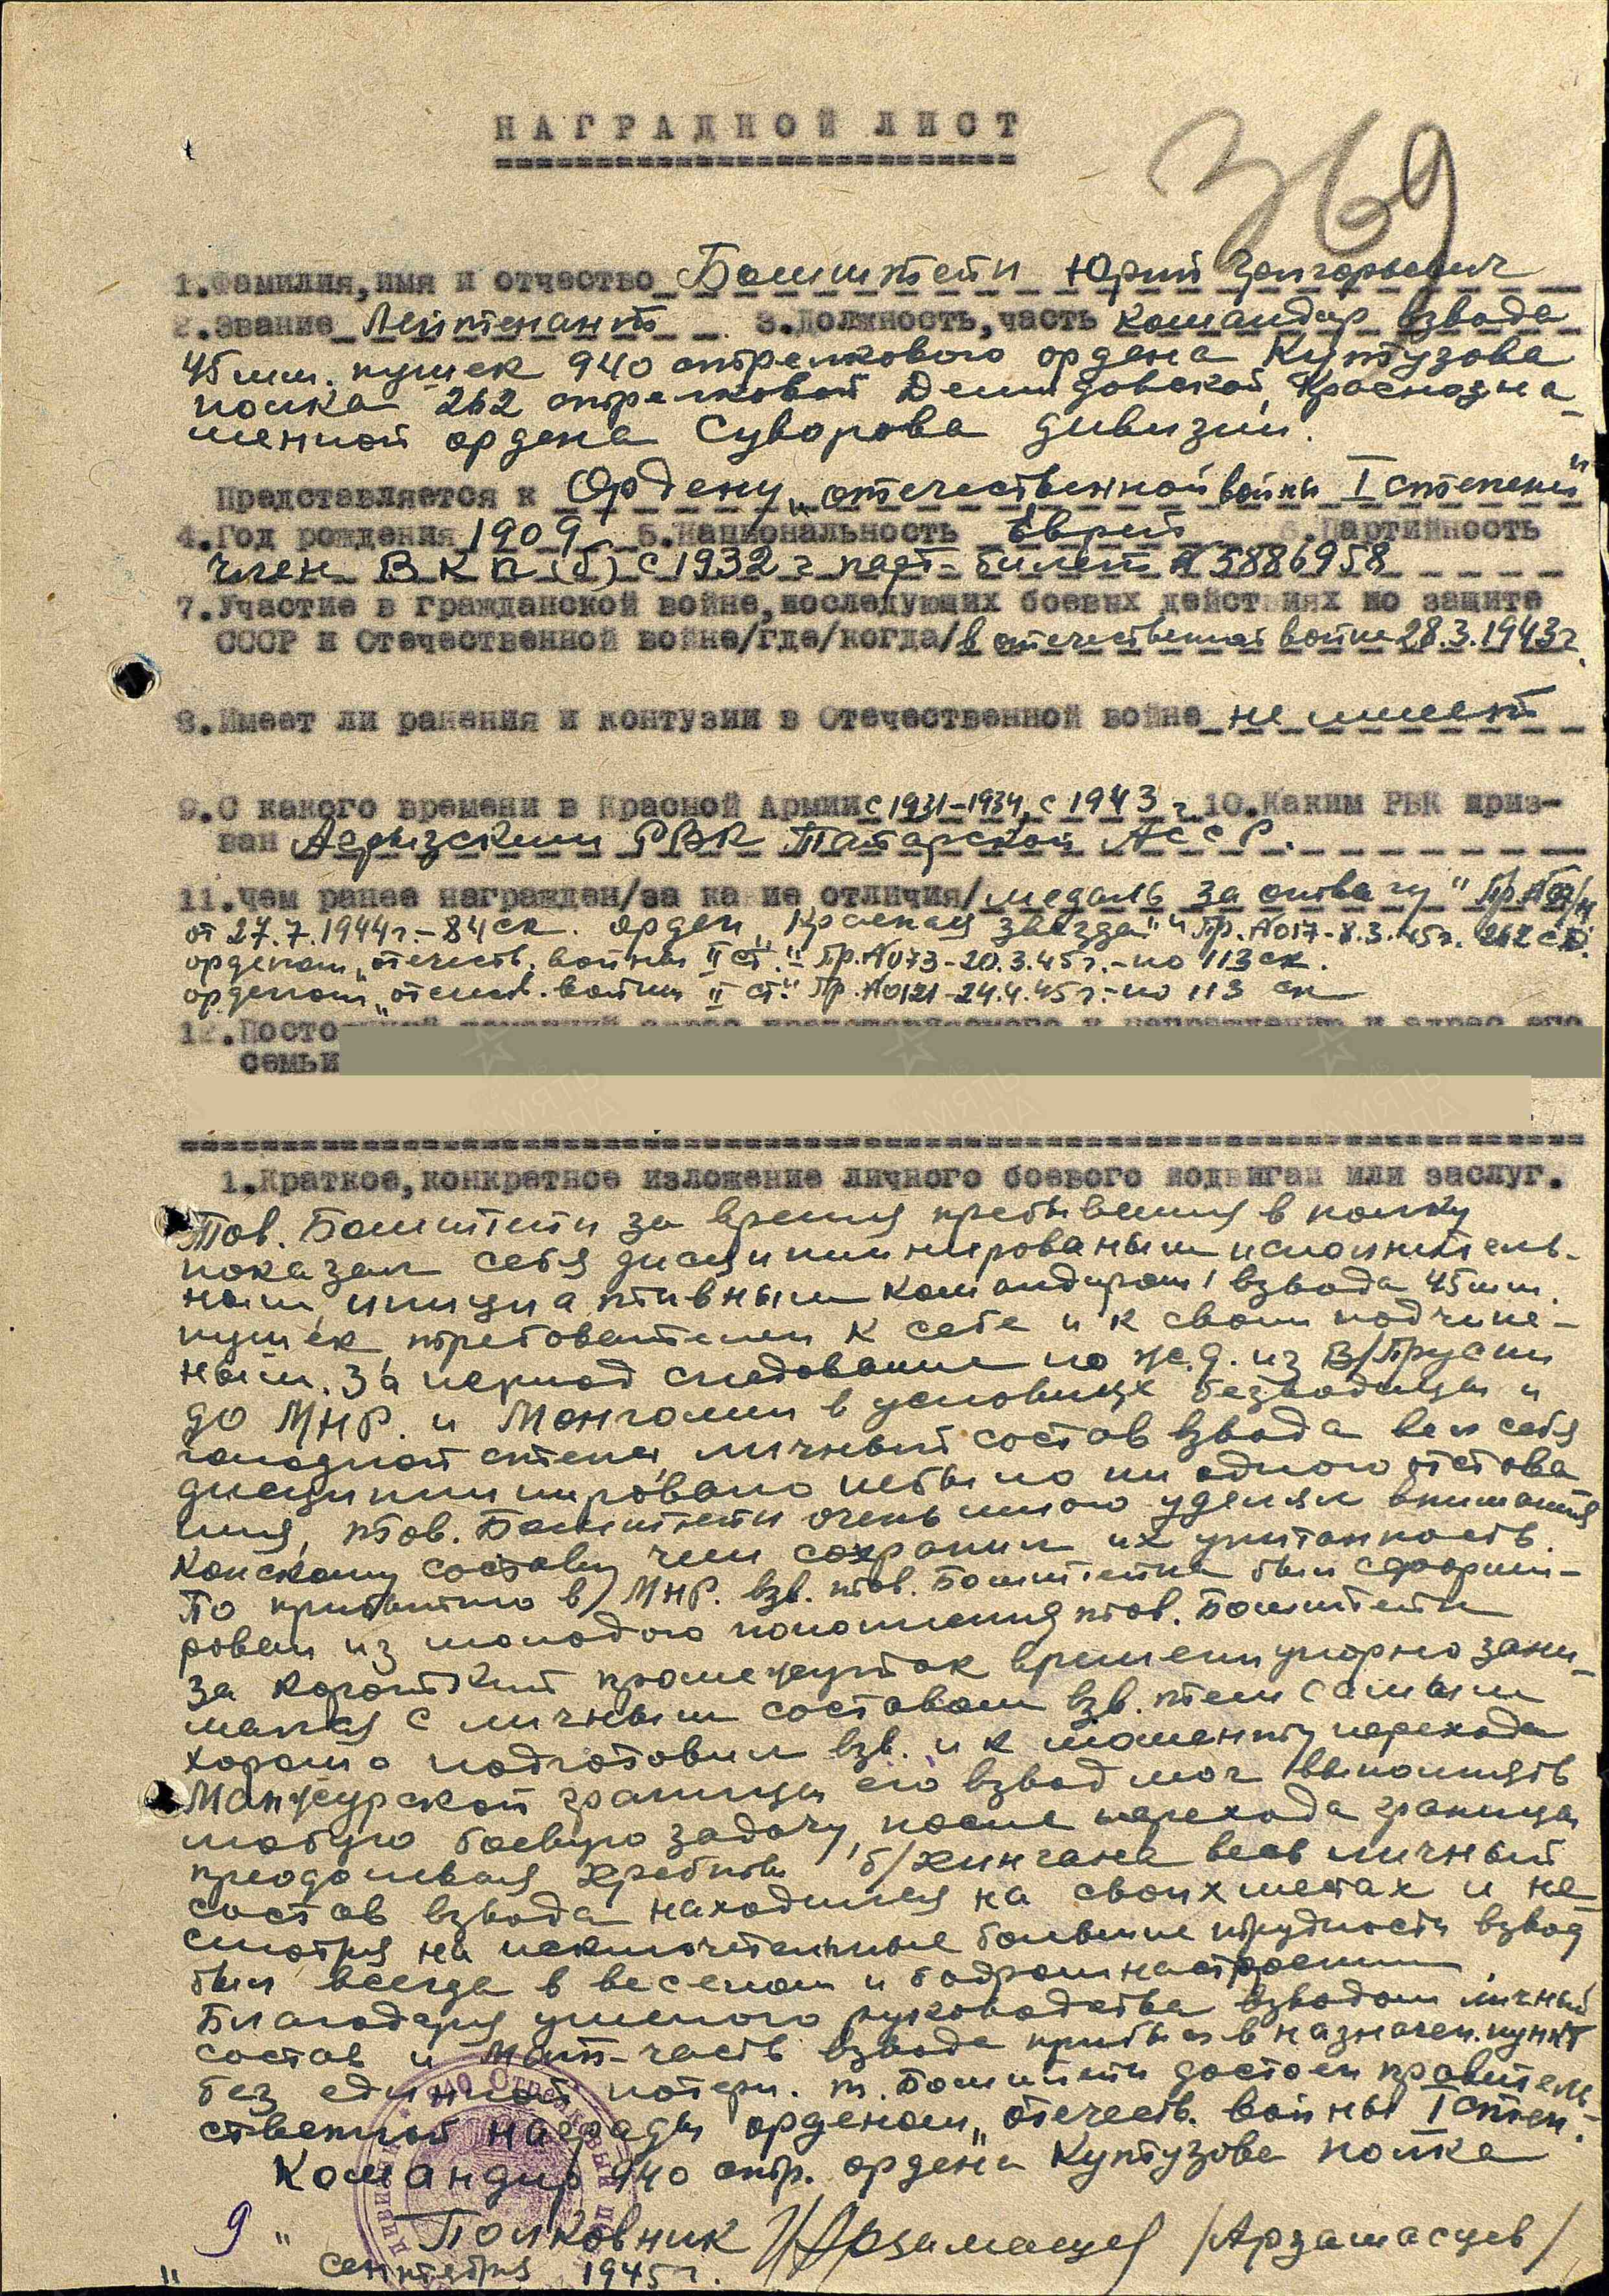 369
НАГРАДНОЙ ЛИСТ
1.Фамилия,имя и отчество Бомштейн Юрий Григорьевич
2.Звание Лейтенант 3.Должность,часть командир взвода
45 мм. пушек 940 стрелкового ордена Кутузова
полка 262 стрелковой Демидовской, Краснозна-
менной ордена Суворова дивизии.
Представляется к Ордену „отечественной войны I степени"
4.Год рождения 1909 5.Национальность Еврей 6.Партийность
член ВКП(б) с 1932 г парт-билет № 3886958
7.Участие в гражданской войне,последующих боевых действиях по защите
СССР и Отечественной войне/где/когда/ в отечественной войне 28.3.1943г.
8.Имеет ли ранения и контузии в Отечественной войне не имеет
9.С какого времени в Красной Армии с 1931-1934, с 1943 г. 10.Каким РВК приз-
ван Агрызским РВК Татарской АССР.
11.Чем ранее награжден/за какие отличия/ медаль за отвагу" Пр.№07/н
от 27.7.1944г.-84ск. орден „Красная звезда" Пр.№017-8.3.45г. 262 сд.
орденом „отечеств. войны II ст." Пр.№073-20.3.45г.-по 113 ск.
орденом „отечеств. войны II ст." Пр.№0121-24.4.45г.-по 113 ск
12.Посто
семьи
1.Краткое,конкретное изложение личного боевого подвиган или заслуг.
Тов. Бомштейн за время пребывания в полку
показал себя дисциплинированым исполнитель-
ным, инициативным командиром взвода 45 мм.
пушек требователен к себе и к своим подчине-
ным. За период следование по ж.д. из В/Пруссии
до МНР. и Монголии в условиях безводицы и
голодной степи, личный состав взвода вел себя
дисциплинировано небыло ни одного отстова
ния, тов. Бомштейн очень много уделял внимания
конскому составу чем сохранил их упитанность.
По прибытию в МНР. взв. тов. Бомштейна был сформи-
рован из молодого пополнения тов. Бомштейн
за короткий промежуток времени упорно зани-
мался с личным составом взв. тем самым
хорошо подготовил взв. и к моменту перехода
Манжурской границы его взвод мог выполнять
любую боевую задачу, после перехода границы
преодолевая хребты б/хингана весь личный
состав взвода находился на своих местах и не
смотря на исключительные большие трудности взвод
был всегда в веселом и бодром настроении.
Благодаря умелого руководства взводом личный
состав и мат-часть взвода прибыл в назначен. пункт
без единной потери. т. Бомштейн достоен правитель-
ственной награды орденом „отечеств. войны I степ.
Командир 940 стр. ордена Кутузова полка
Полковник /Арзамасцев/
9 "
" сентября 1945г.